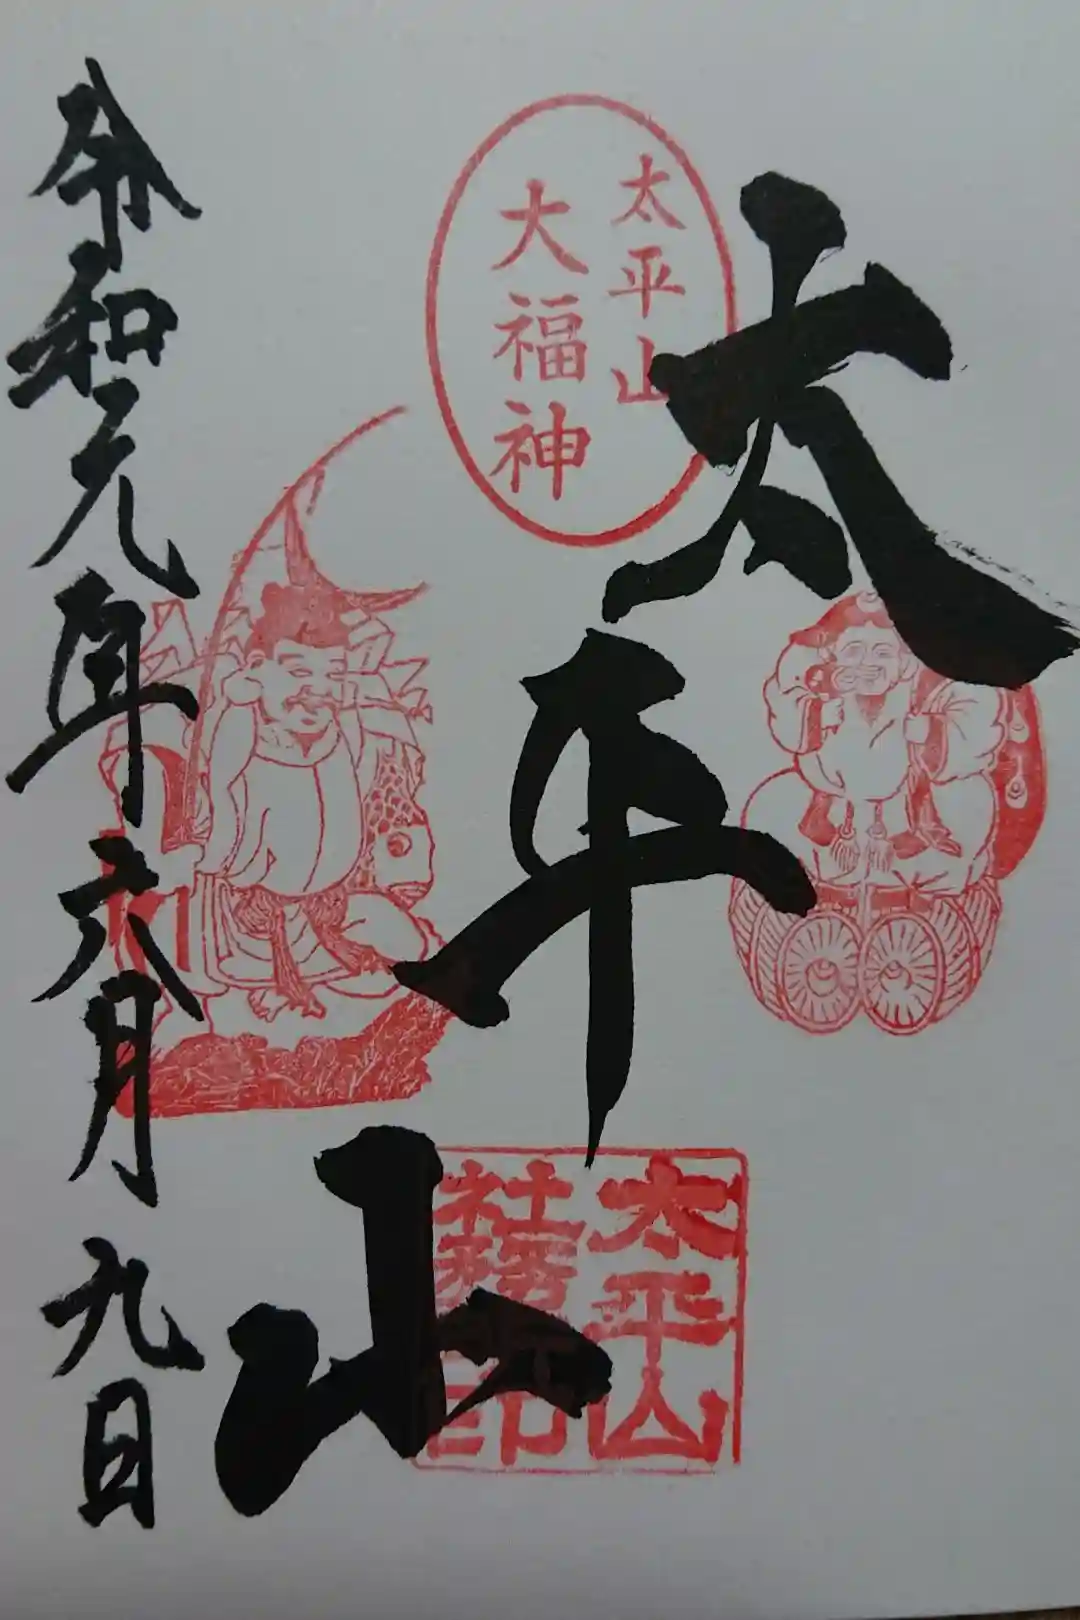 太平山
太平山
大福神
太平山
社務所印
令和元年六月九日